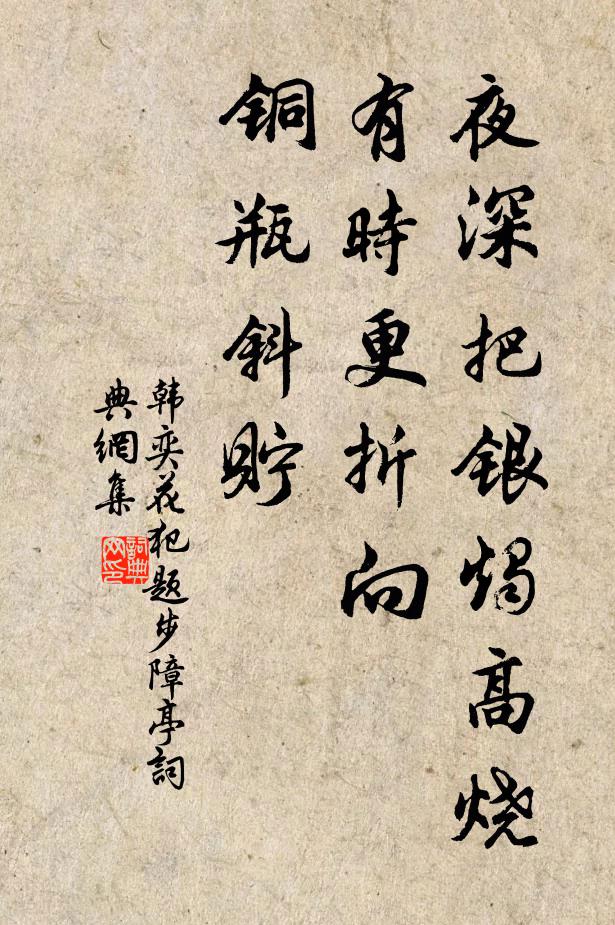 夜深把银烛高烧
有時更折向
铜瓶斜貯
韩奕花犯题步障亭詞
典網集
詞典网印